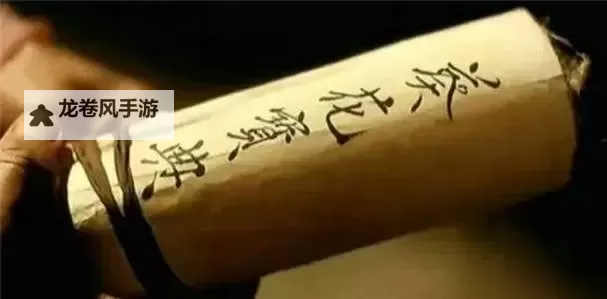 龙卷风手游
葵花寶典